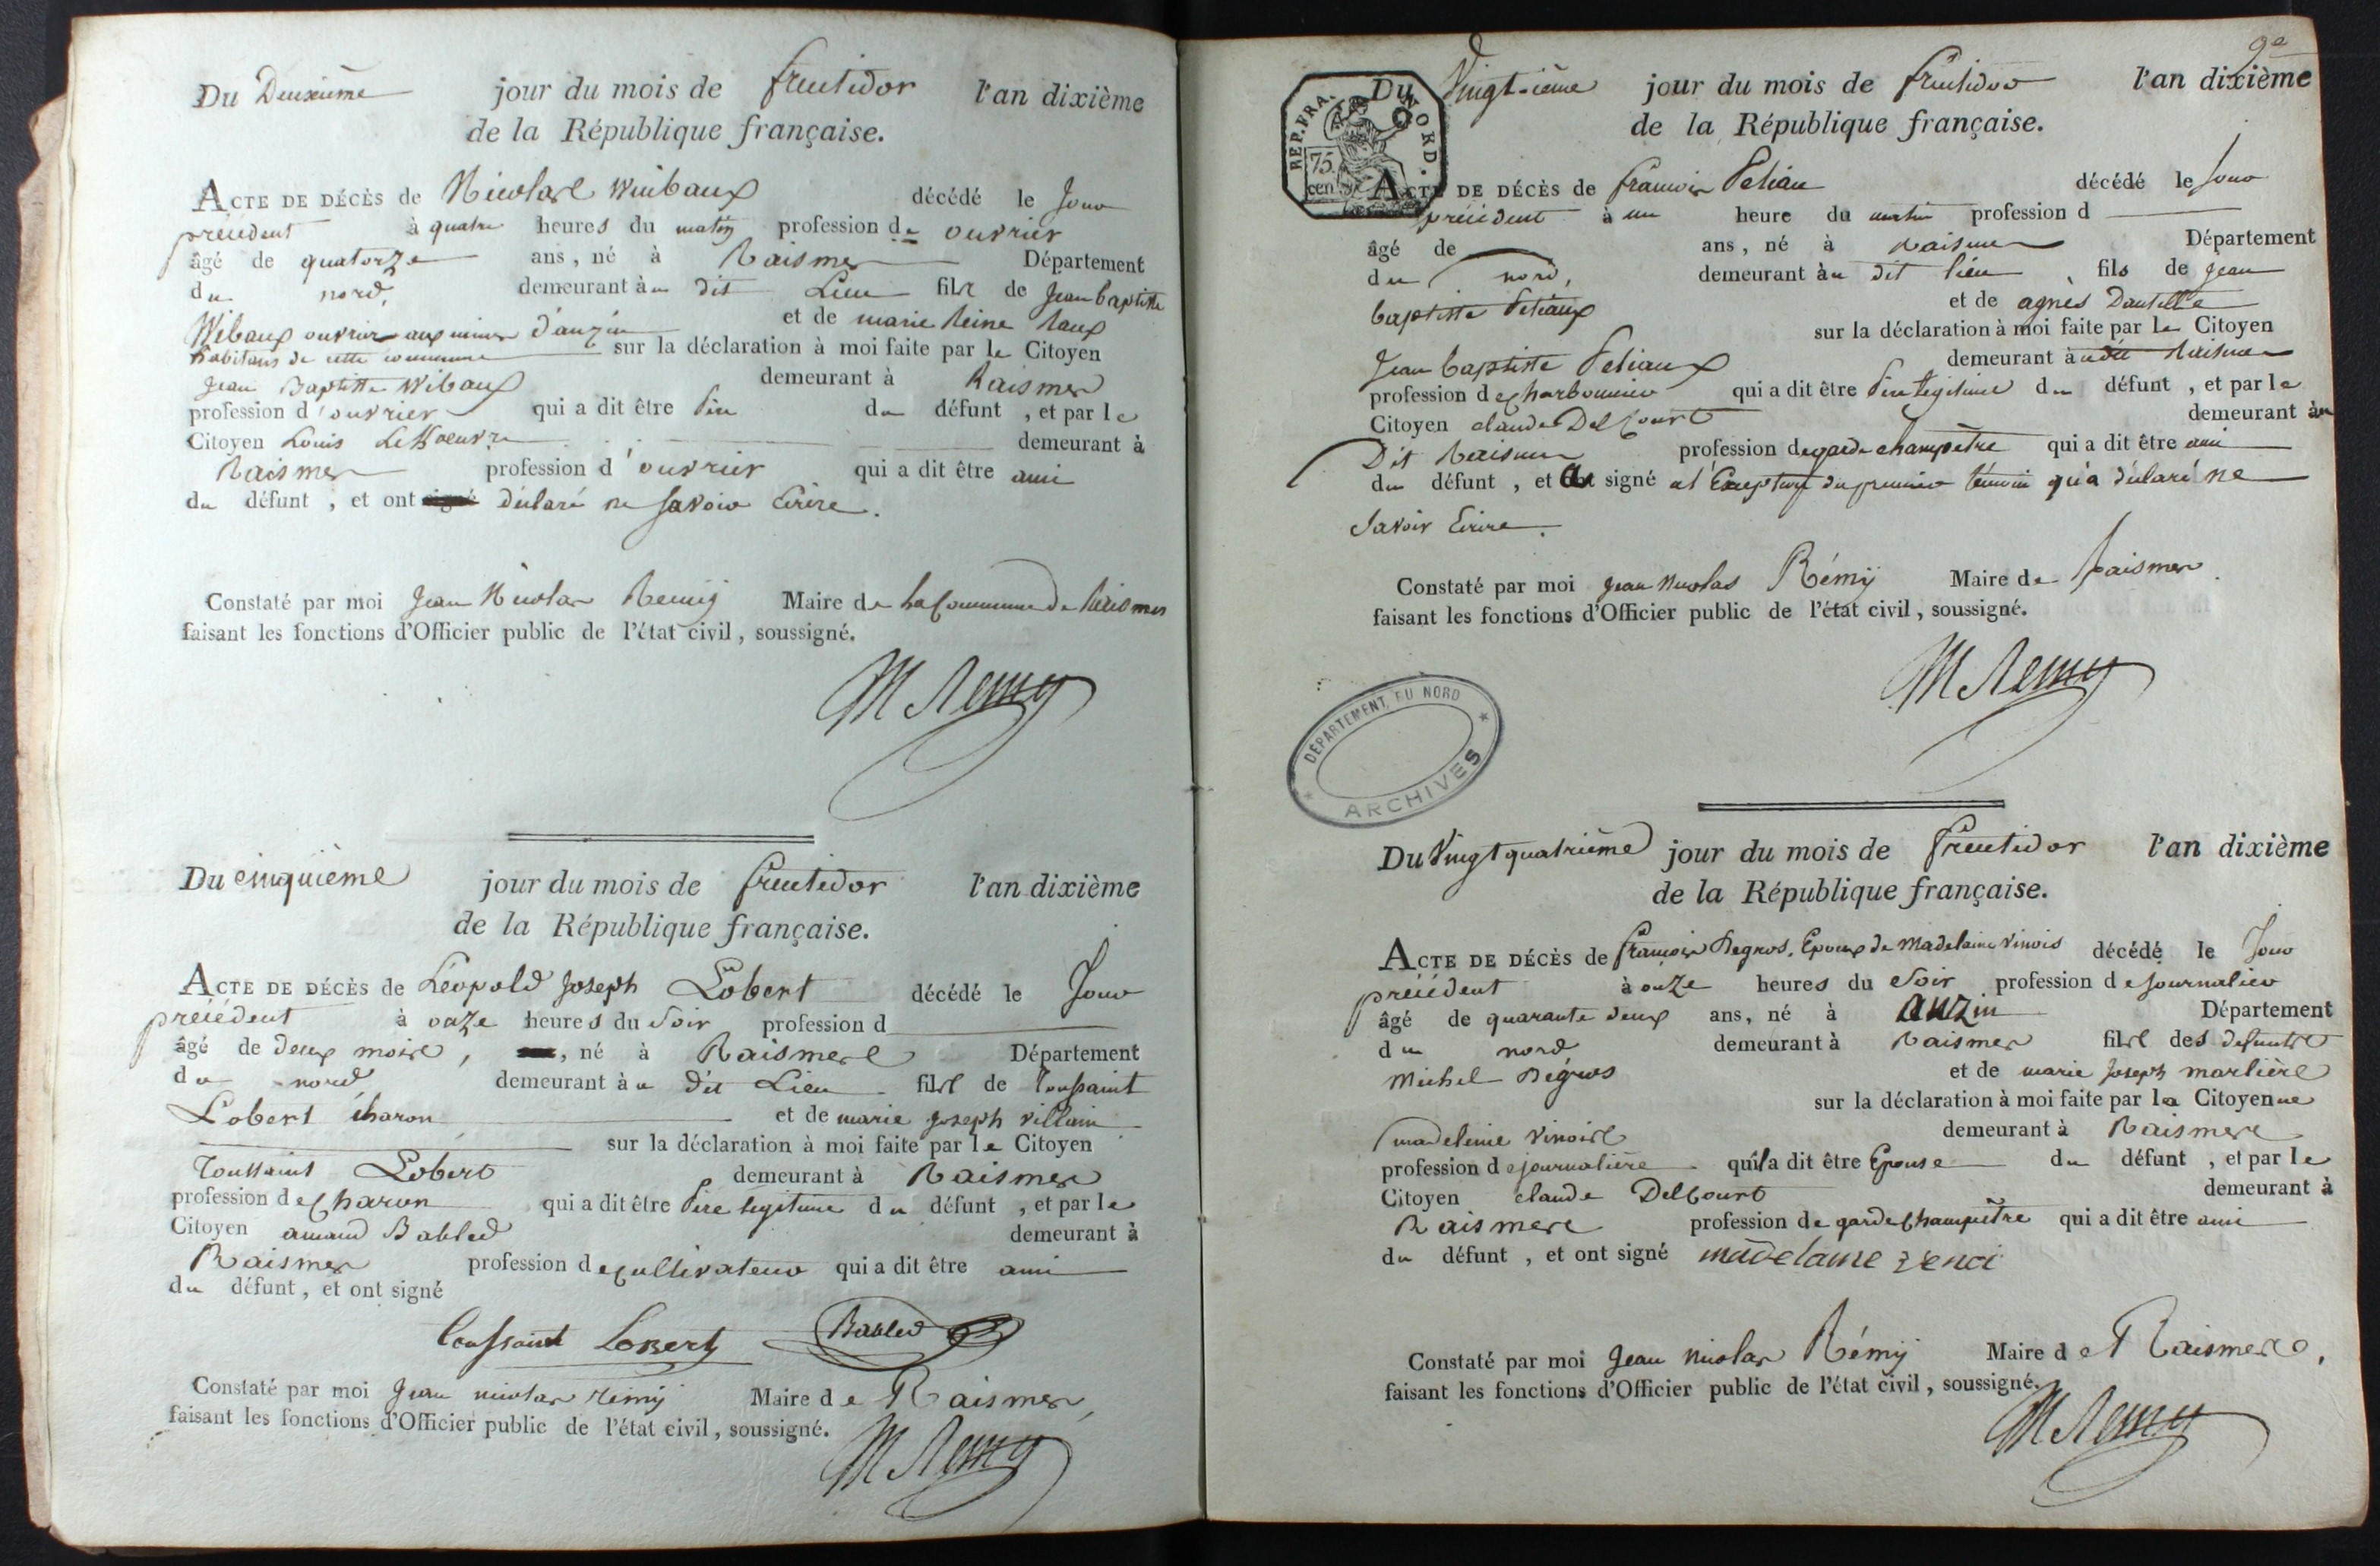 Du Deuxième jour du mois de fructidor l'an dixième
de la République française.
ACTE DE DÉCÈS de Nicolas Wuibaux décédé le Jour
précédent à quatre heures du matin profession de ouvrier
âgé de quatorze ans, né à Raismes Département
du nord, demeurant àu dit Lieu fils de Jean baptiste
Wibaux ouvrier aux mines d'anzin et de marie Reine Raux
habitans de cette commune sur la déclaration à moi faite par le Citoyen
Jean Baptiste Wibaux demeurant à Raismes
profession d'ouvrier qui a dit être Père du défunt, et par le
Citoyen Louis demeurant à
Raismes profession d'ouvrier qui a dit être ami
du défunt, et ont déclaré ne Savoir Ecrire.
Constaté par moi Jean Nicolas Remij Maire de la Commune de Raismes
faisant les fonctions d'Officier public de l'état civil, soussigné.
M Remy
Du cinquième jour du mois de fructidor l'an dixième
de la République française.
ACTE DE DÉCÈS de Léopold Joseph Lobert décédé le Jour
précédent à onze heures du Soir profession d
âgé de deux mois, né à Raismes Département
du nord demeurant àu dit Lieu fils de Toussaint
Lobert charon et de marie Joseph villain
sur la déclaration à moi faite par le Citoyen
Toussaint Lobert demeurant à Raismes
profession de charon qui a dit être Père légitime du défunt, et par le
Citoyen amand Babled demeurant à
Raismes profession de cultivateur qui a dit être ami
du défunt, et ont signé
Toussaint Lobert Babled
Constaté par moi Jean nicolas Rémij Maire de Raismes,
faisant les fonctions d'Officier public de l'état civil, soussigné.
M Remy
9e
REP. FRA. NORD.
75 cen
Du Vingt-ième jour du mois de fructidor l'an dixième
de la République française.
ACTE DE DÉCÈS de francois Petiau décédé le Jour
précédent à un heure du matin profession d
âgé de ans, né à Raismes Département
du nord, demeurant àu dit lieu, fils de Jean
baptiste Petiaux et de agnès Dautelle
sur la déclaration à moi faite par le Citoyen
Jean baptiste Petiaux demeurant àu dit Raismes
profession de charbonnier qui a dit être Père légitime du défunt, et par le
Citoyen claude Delcourt demeurant àu
Dit Raismes profession de garde champêtre qui a dit être ami
du défunt, et a signé al Exeption du premier témoin qu'a déclaré ne
Savoir Ecrire.
Constaté par moi Jean Nicolas Rémij Maire de Raismes.
faisant les fonctions d'Officier public de l'état civil, soussigné.
M Remy
DÉPARTEMENT DU NORD
ARCHIVES
Du Vingt quatrième jour du mois de fructidor l'an dixième
de la République française.
ACTE DE DÉCÈS de françois Degros, Epoux de Madelaine Vinois décédé le Jour
précédent à onze heures du Soir profession de Journalier
âgé de quarante deux ans, né à anzin Département
du nord demeurant à Raismes fils des defunts
Michel Dégros et de marie Joseph marlière
sur la déclaration à moi faite par la Citoyenne
madeleine vinois demeurant à Raismes
profession de journalière qui a dit être Epouse du défunt, et par le
Citoyen claude Delcourt demeurant à
Raismes profession de garde champêtre qui a dit être ami
du défunt, et ont signé madelaine venoi
Constaté par moi Jean nicolas Rémij Maire de Raismes,
faisant les fonctions d'Officier public de l'état civil, soussigné.
M Remy